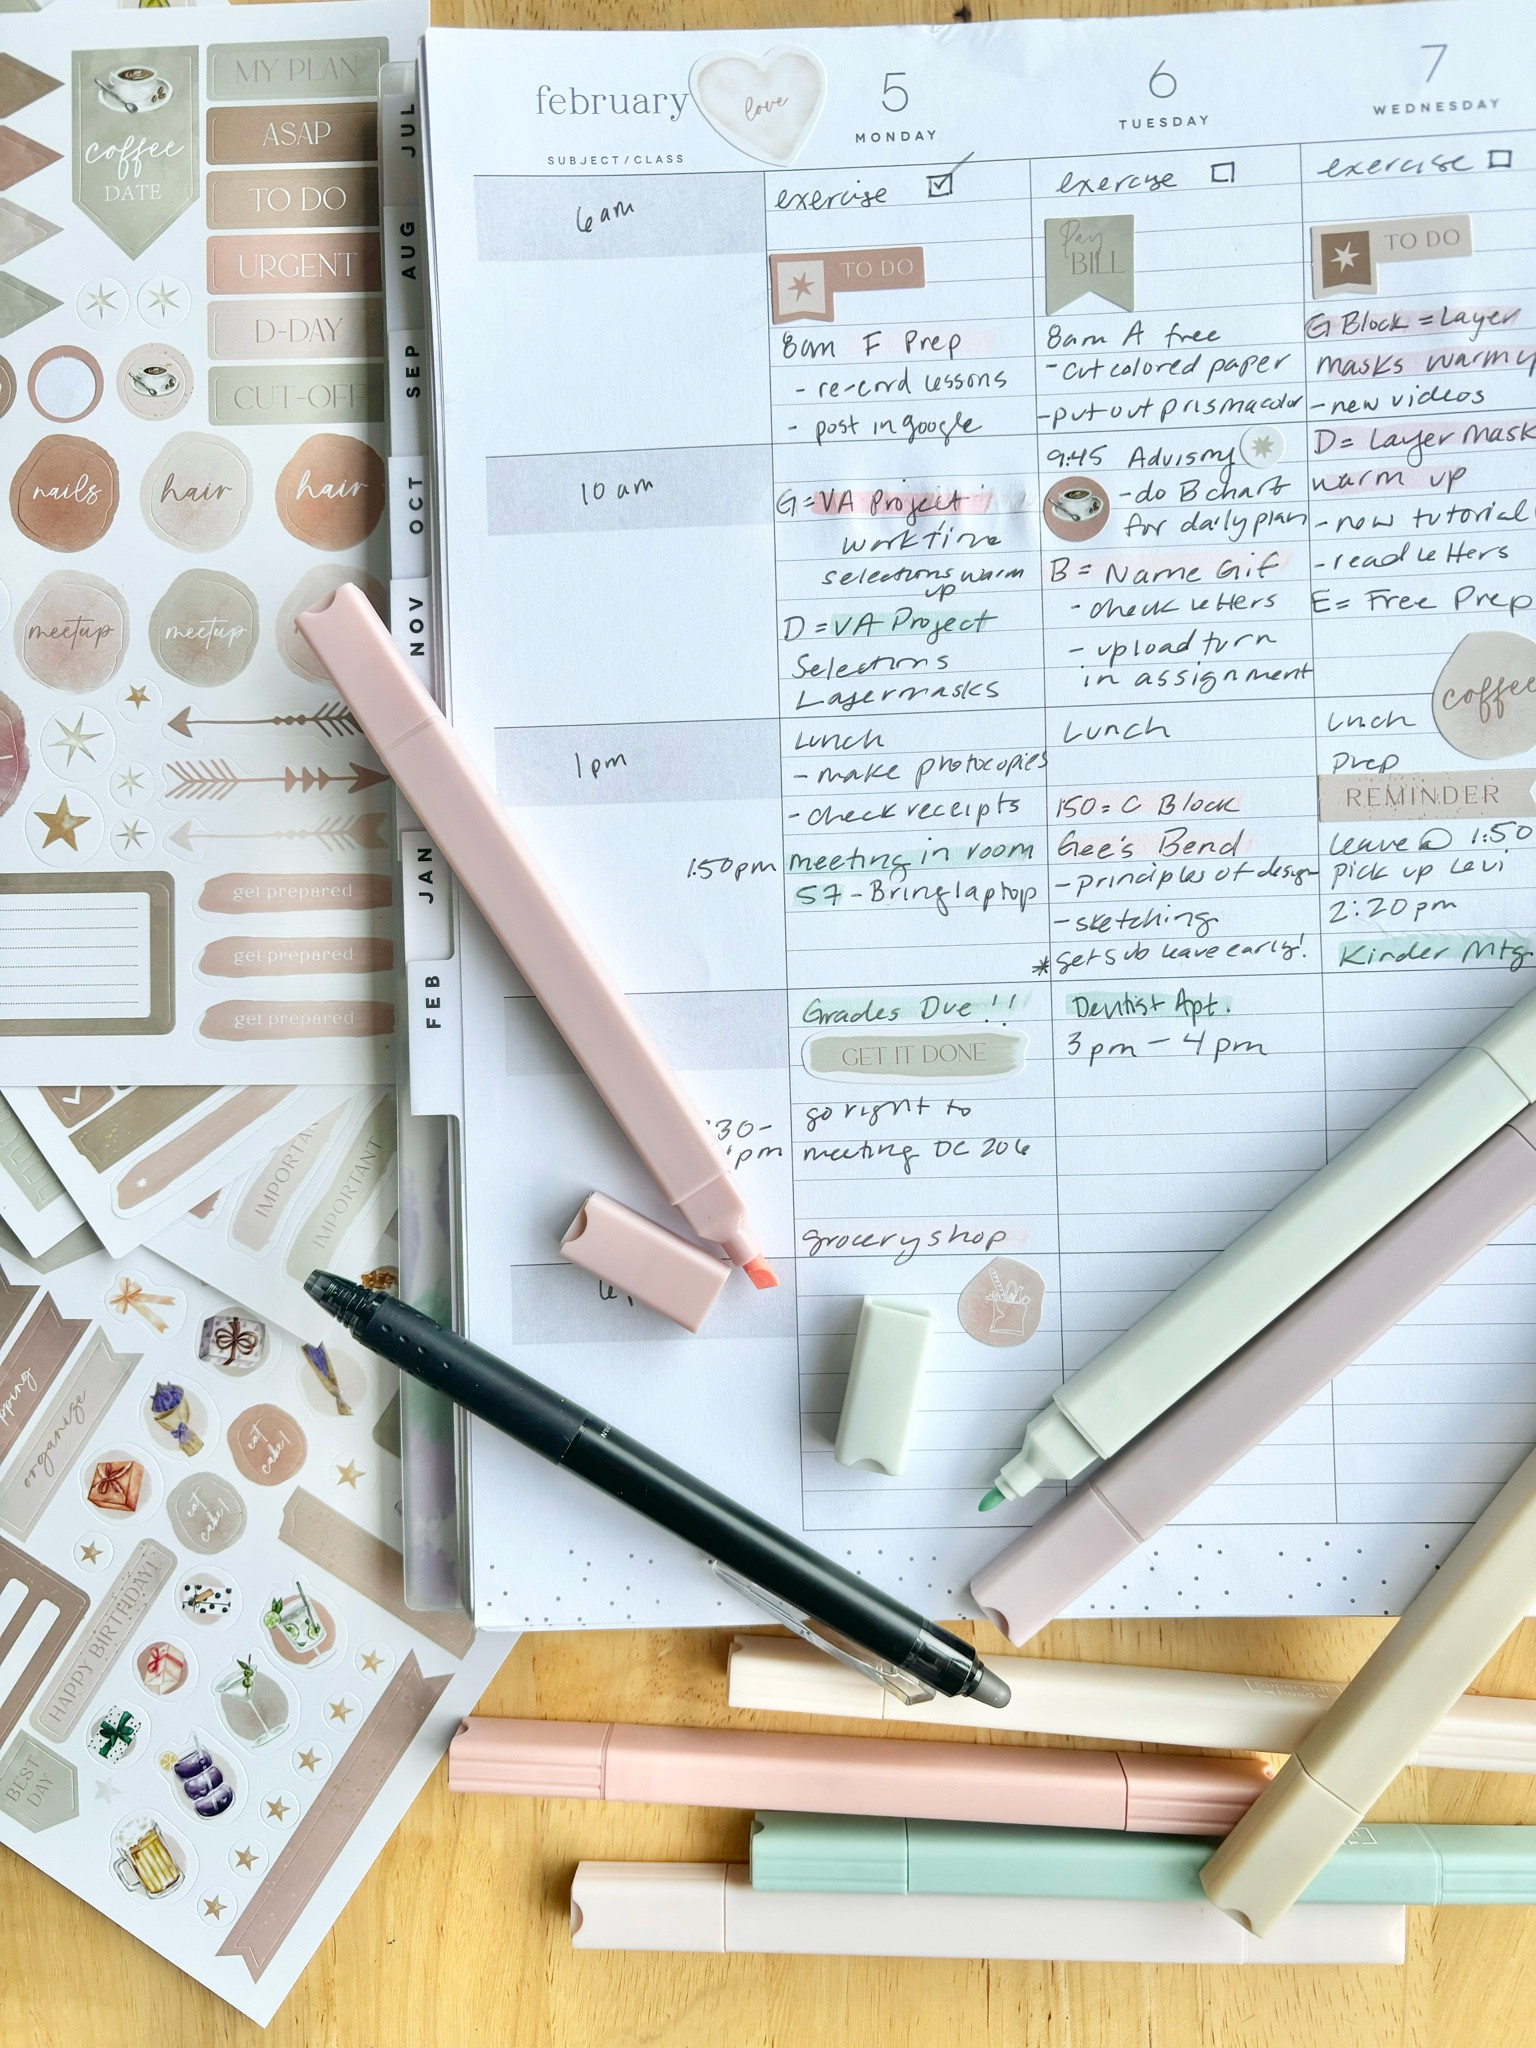 coffee
DATE
MY PLAN
ASAP
TO DO
URGENT
D-DAY
CUT-OFF
nails
hair
hair
meetup
meetup
get prepared
get prepared
get prepared
IMPORTANT
IMPORTANT
organize
eat
cake!
eat
cake!
HAPPY BIRTHDAY!
BEST
DAY
JUL
AUG
SEP
OCT
NOV
JAN
FEB
february
love
SUBJECT/CLASS
6 am
10 am
1 pm
1:50 pm
5
MONDAY
exercise
TO DO
8am F Prep
- re-cord lessons
- post in google
G = VA Project
work time
selections warm
up
D = VA Project
Selections
Layermasks
Lunch
- make photocopies
- check receipts
meeting in room
57 - Bring laptop
Grades Due!!
GET IT DONE
go right to
meeting DC 206
grocery shop
6
TUESDAY
exercise
Pay
BILL
8am A free
- cut colored paper
- put out prismacolor
9:45 Advisory
- do B chart
for daily plan
B = Name Gif
- check letters
- upload turn
in assignment
Lunch
150 = C Block
Gee's Bend
- principles of design
- sketching
* get sub leave early!
Dentist Apt.
3 pm - 4 pm
7
WEDNESDAY
exercise
TO DO
G Block = Layer
masks warm up
- new videos
D = Layer Mask
warm up
- new tutorial
- read letters
E = Free Prep
coffee
Lunch
prep
REMINDER
leave @ 1:50
pick up Levi
2:20 pm
Kinder Mtg.